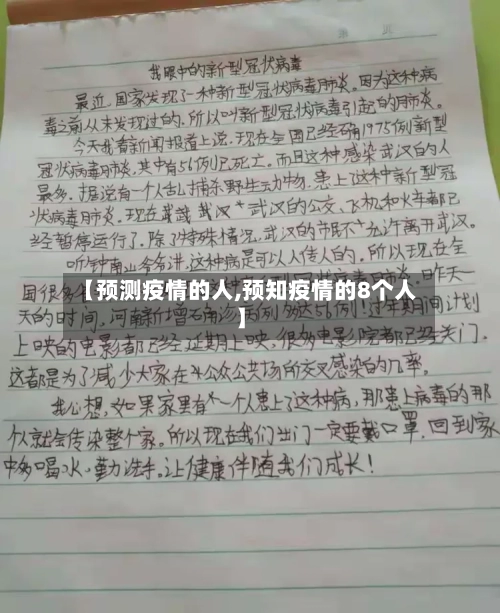 我眼中的新型冠状病毒
最近,国家发现了一种新型冠状病毒肺炎。因为这种病
毒之前从未发现过的,所以叫新型冠状病毒引起的肺炎。
今天我看新闻报道上说,现在全国已经确1975例新型
冠状病毒肺炎,其中有56例已死亡。而且这种感染武汉的人
最多。据说有一个人去捕杀野生动物,患上了这种新型冠
状病毒肺炎。现在 武汉 武汉的公交、飞机和火车都已
经暂停运行了。除了特殊情况,武汉的市民不允许离开武汉。
听钟南山爷爷讲,这种病是可以人传人的。所以现在全
国很多
【预测疫情的人,预知疫情的8个人
】
昨天一
天的时间,河南新增石角诊病例多达56例!过年期间计划
上映的电影都已经延期上映,很多电影院都已经关门,
这都是为了减少大家在公众公共场所交叉感染的几率。
我心想,如果家里有一个人患上了这种病,那患上病毒的那
个人就会传染整个家。所以现在我们出门一定要戴口罩,回到家
中多喝水、勤洗手。让健康伴随我们成长!